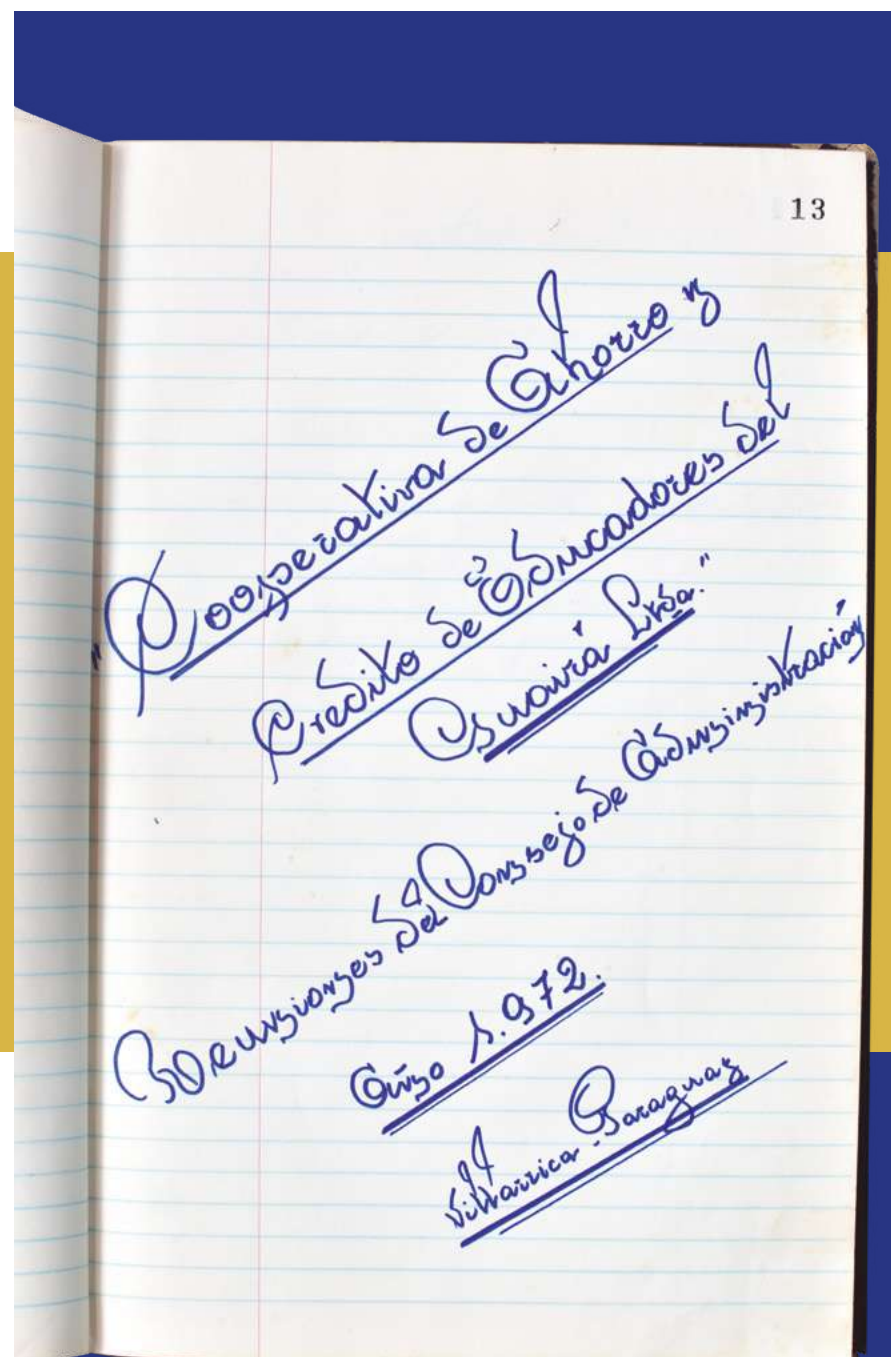 13
"Cooperativa de Ahorro y
Credito de Educadores del
Guairá Ltda."
Reuniones del Consejo de Administración"
Año 1.972.
Villarrica - Paraguay